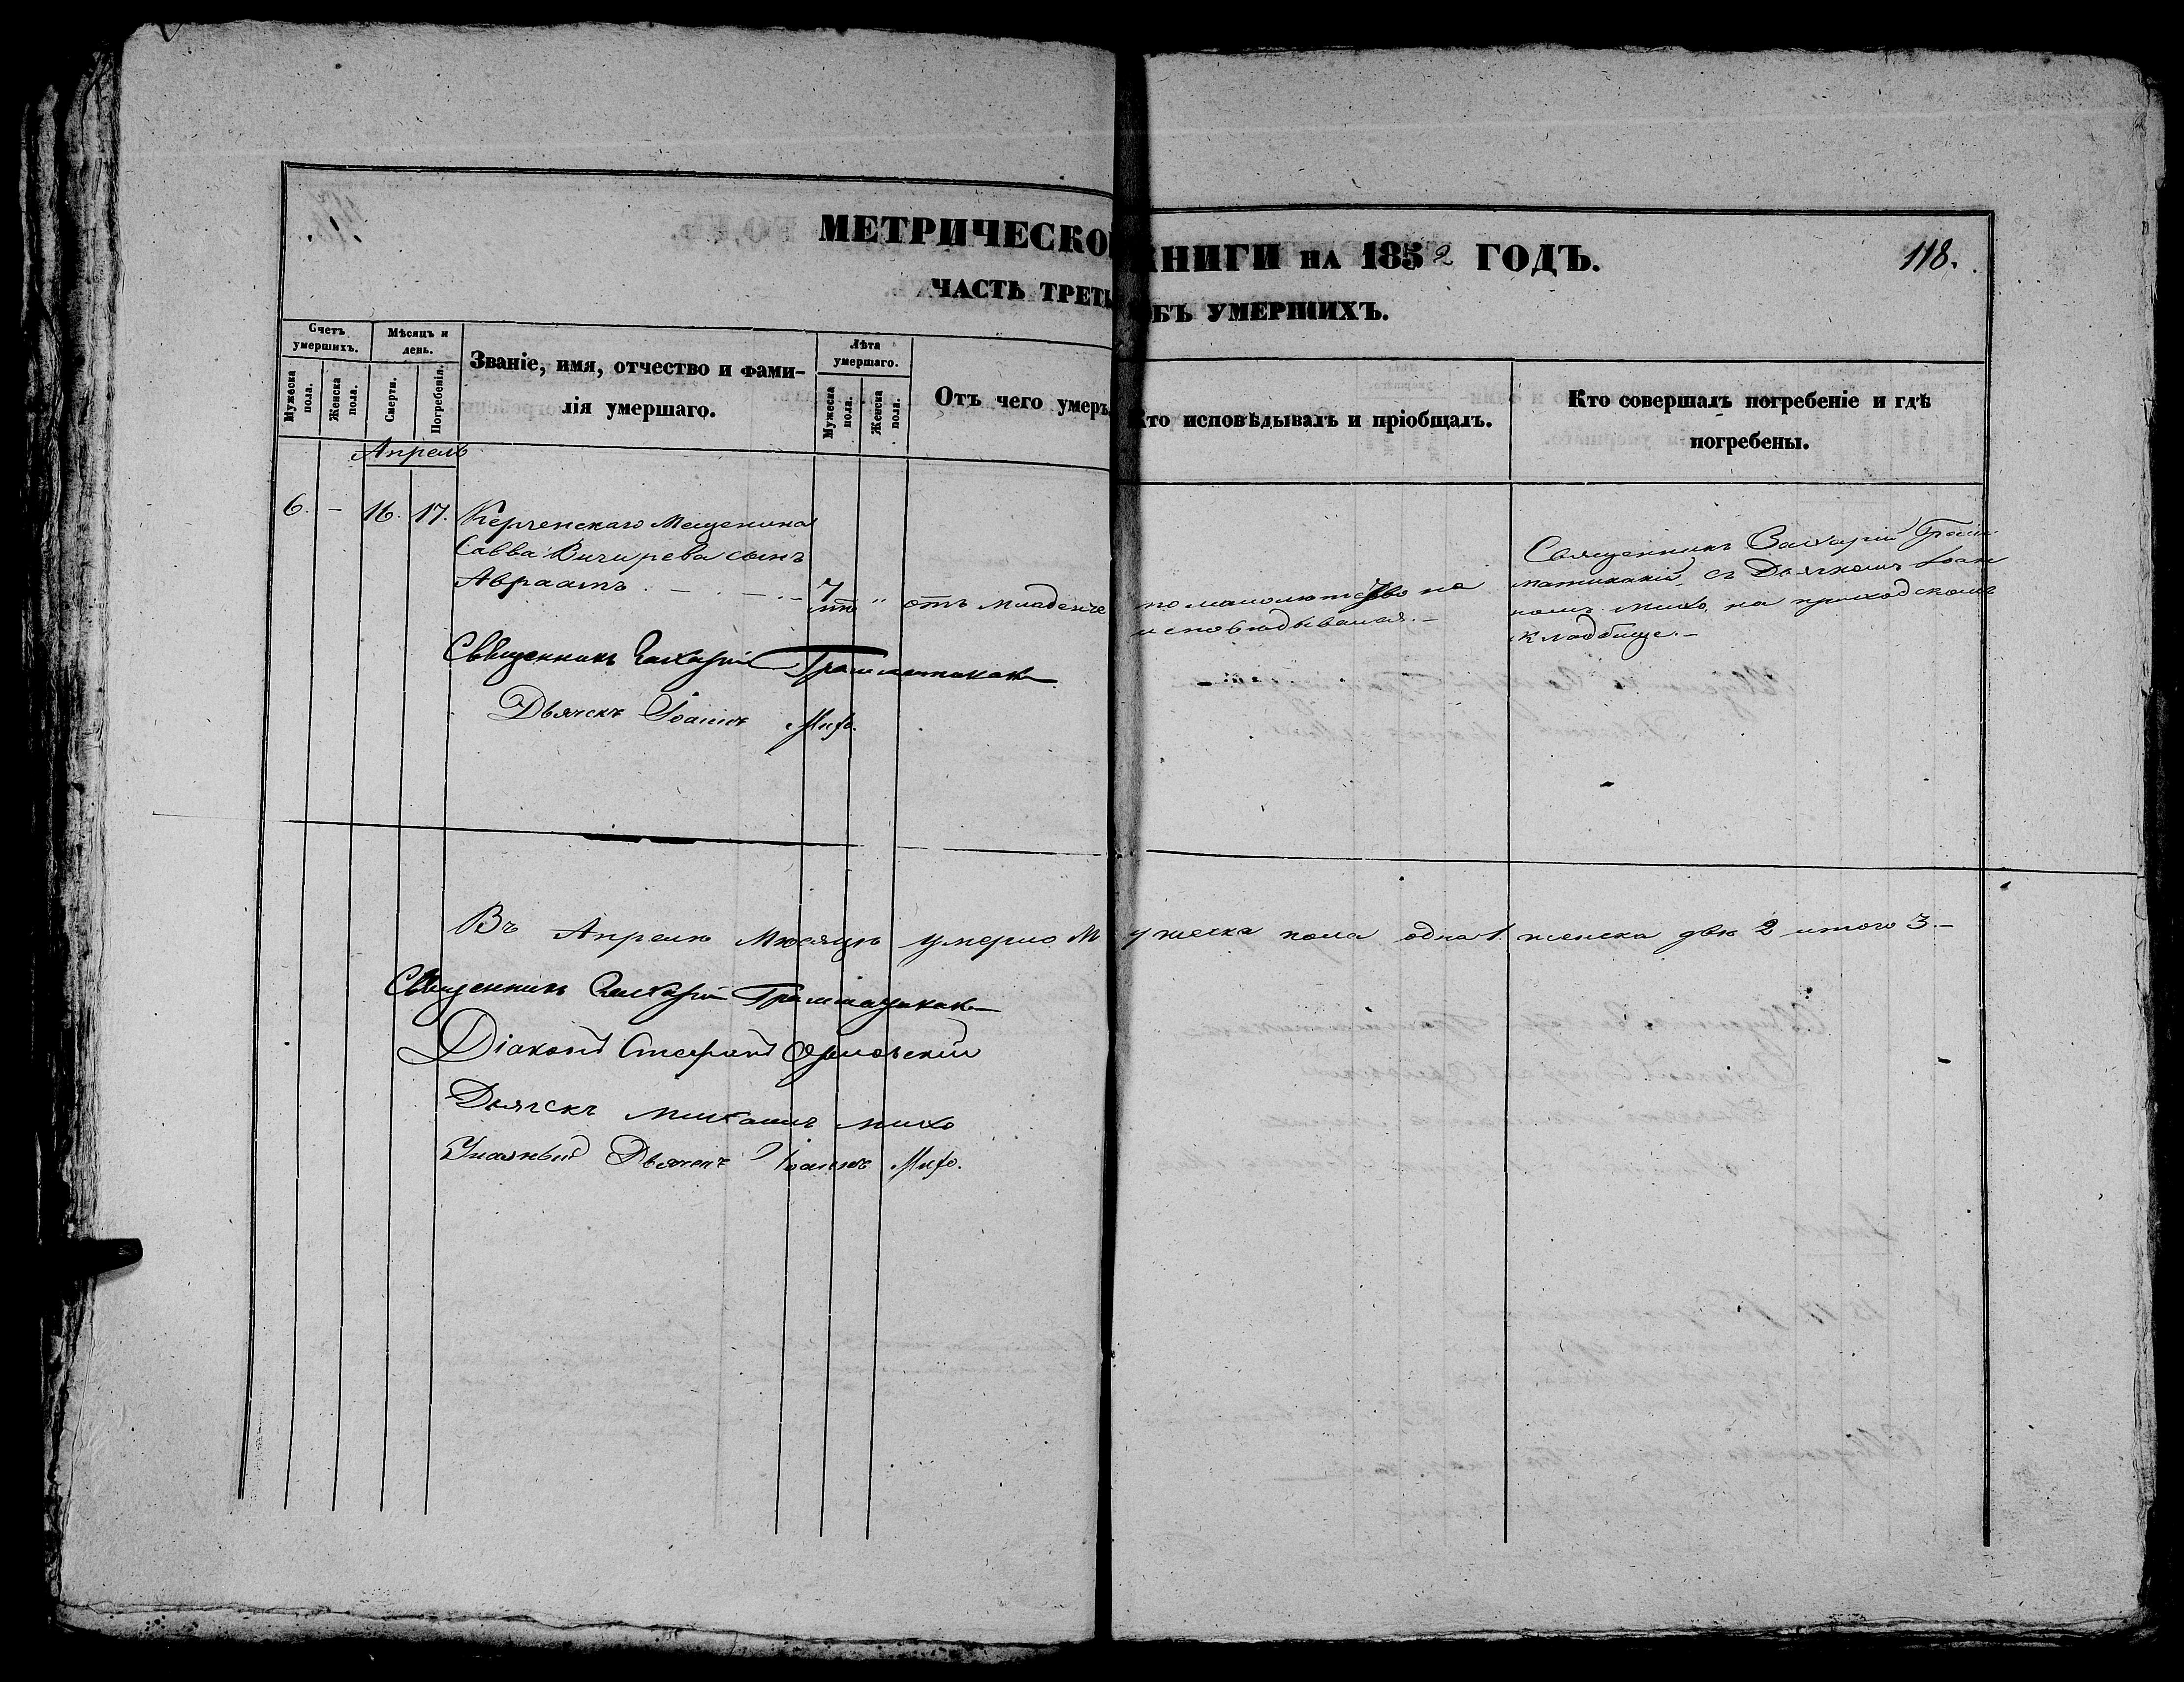 МЕТРИЧЕСКО КНИГИ НА 1852 ГОДЪ.
118.
ЧАСТЬ ТРЕТЬ ОБЪ УМЕРШИХЪ.
Счетъ умершихъ.
Мужеска пола.
Женска пола.
Мѣсяцъ и день.
Смерти.
Погребенія.
Званіе, имя, отчество и фами-
лія умершаго.
Лѣта умершаго.
Мужеска пола.
Женска пола.
Отъ чего умеръ
Кто исповѣдывалъ и пріобщалъ.
Кто совершалъ погребеніе и гдѣ
погребены.
Апрель
6. - 16. 17. Керченскаго Мещенина
Савва Вичирева сынъ
Авраамъ
7 " отъ младенче
по малолютство не
исповюдывался.-
Священникъ Захарій Грам-
матикакій съ Дьячкомъ Іоан
номъ Михо, на приходскомъ
кладбище.-
Священникъ Захарій Грамматикаки
Дьячекъ Іоаннъ Михо.
Въ Апрелю Мюсяцю умерло Мужеска пола одна 1. женска двю 2 итого 3.-
Священникъ Захарій Грамматикаки
Діаконъ Стефанъ Орловскій
Дьячекъ Михаилъ Михо
Дьячекъ Іоаннъ Михо.